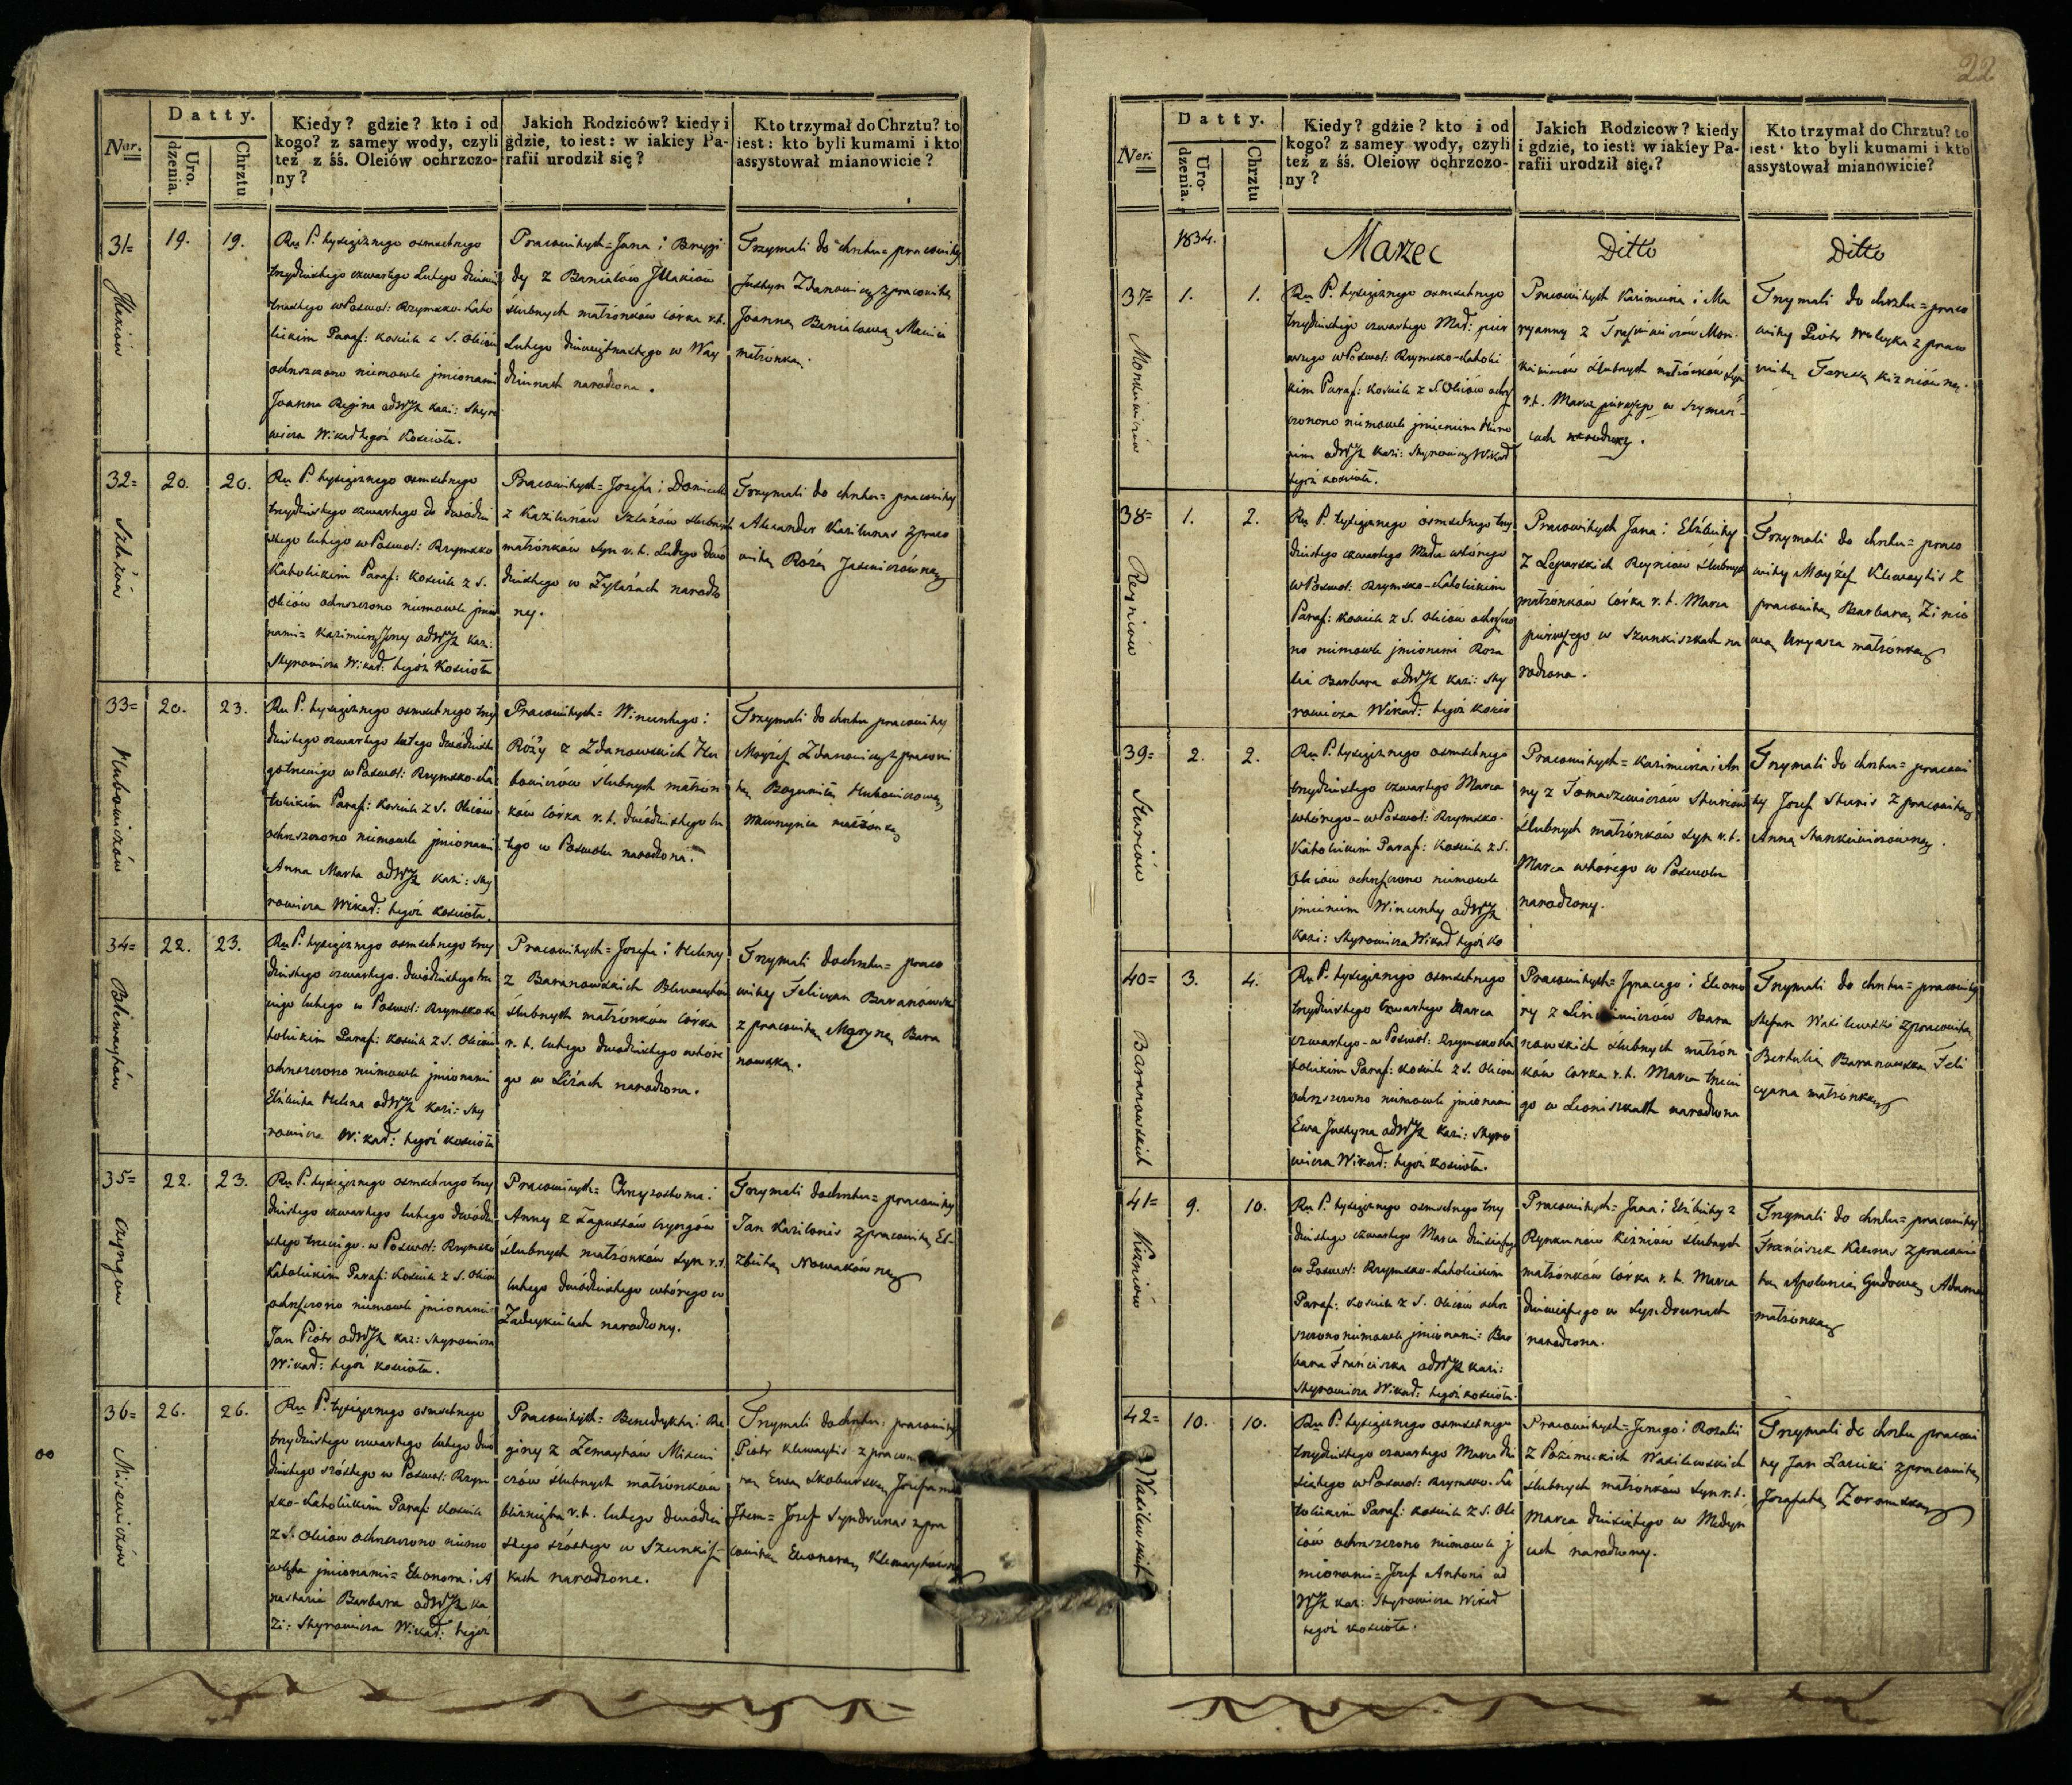 Nar.
Datty.
Uro.
dzenia.
Chrztu
Kiedy? gdzie? kto i od
kogo? z samey wody, czyli
też z śś. Oleiów ochrzczo-
ny?
Jakich Rodziców? kiedy i
gdzie, to iest: w iakiey Pa-
rafii urodził się?
Kto trzymał do Chrztu? to
iest: kto byli kumami i kto
assystował mianowicie?
31=
19.
19.
Ru P. tysiącznego osmsetnego
trzydziestego czwartego Lutego dziewię
tnastego w Poswol: Rzymsko-Kato
lickim Paraf: Kościele z S. Oleiów
ochrzczono niemowle jmionami
Joanna Regina od WJX Kazi: Skyro
wicza Wikad tegoż Kościoła.
Pracowitych= Jana i Brygi
dy z
ślubnych małżonków corka r.t.
Lutego dziewiętnastego w
narodzona.
Trzymali do chrztu= pracowity
Justyn Zdanowicz z pracowitą
Joanną Banialową Macieia
małżonką.
32=
Szlażów
20.
20.
Ru P. tysiącznego osmsetnego
trzydziestego czwartego dwódzie
stego lutego w Poswol: Rzymsko
Katolickim Paraf: Kościele z S.
Oleiów ochrzczono niemowle jmio
nami= Kazimierz Jerzy od WJX Kazi:
Skyrowicza Wikad: tegoż Kościoła
Pracowitych= Jozefa i Dominiki
z Kazilunów Szlażów ślubnych
małżonków syn r.t. Lutego dwó
dziestego w narodzo
ny.
Trzymali do chrztu= pracowity
Alexander Kazilunas z praco
witą Rożą Jasewiczówną
33=
Hubowiczów
20.
23.
Ru P. tysiącznego osmsetnego trzy
dziestego czwartego lutego dwódziesto
go trzeciego w Poswol: Rzymsko-Ka
tolickim Paraf: Kościele z S. Oleiów
ochrzczono niemowle jmionami
Anna Marta od WJX Kazi: Sky
rowicza Wikad: tegoż Kościoła.
Pracowitych= Wincentego i
Róży z Zdanowskich Hu
bowiczów ślubnych małżon
ków córka r.t. dwódziestego lu
tego w Poswolu narodzona.
Trzymali do chrztu pracowity
Moyżef Zdanowicz z pracowi
tą Bogumiłą Hubowiczową
małżonką
34=
Blewaytów
22.
23.
Ru P. tysiącznego osmsetnego trzy
dziestego czwartego dwódziestego trze
ciego lutego w Poswol: Rzymsko Ka
tolickim Paraf: Kościele z S. Oleiów
ochrzczono niemowle jmionami
Elżbieta Helena od WJX Kazi: Sky
rowicza Wikad: tegoż Kościoła
Pracowitych= Jozefa i Heleny
z Baranowskich Blewaytów
ślubnych małżonków córka
r.t. lutego dwódziestego wtóre
go w Liżach narodzona.
Trzymali do chrztu= praco
wity Felicyan Baranówski
z pracowitą Maryną Bara
nowską.
35=
22.
23.
Ru P. tysiącznego osmsetnego trzy
dziestego czwartego lutego dwódzie
stego trzeciego w Poswol: Rzymsko
Katolickim Paraf: Kościele z S. Oleiów
ochrzczono niemowle jmionami
Jan Piotr od WJX Kaz: Skyrowicza
Wikad: tegoż Kościoła.
Pracowitych= Chryzostoma i
Anny z Łapustów
ślubnych małżonków syn r.t.
lutego dwódziestego wtórego w
narodzony.
Trzymali do chrztu= pracowity
Jan Kazilonis z pracowitą El=
żbietą Nowakówną
36=
Misewiczów
26.
26.
Ru P. tysiącznego osmsetnego
trzydziestego czwartego lutego dwó
dziestego szóstego w Poswol: Rzym
sko-Katolickim Paraf: Kościele
z S. Oleiów ochrzczono niemo
wlęta jmionami= Eleonora i A
nastazia Barbara od WJX Ka
zi: Skyrowicza Wikad: tegoż
Pracowitych= Benedykta i Re
giny z Żemaytów Misewi
czów ślubnych małżonków
bliznięta r.t. lutego dwódzie
stego szóstego w Szunkisz
kach narodzone.
Trzymali do chrztu: pracowity
Piotr Klewaytis z pracowi
tą Ewą Skoburską Jozefa mał
Item= Józef Syndrunas z pra
cowitą Eleonorą Klewaytówną
22
Ner.
Datty.
Uro-
dzenia.
Chrztu
Kiedy? gdzie? kto i od
kogo? z samey wody, czyli
też z śś. Oleiow ochrzczo-
ny?
Jakich Rodzicow? kiedy
i gdzie, to iest: w iakiey Pa-
rafii urodził się.?
Kto trzymał do Chrztu? to
iest kto byli kumami i kto
assystował mianowicie?
1834.
Marzec
Ditto
Ditto
37=
Monkiewiczów
1.
1.
Ru P. tysiącznego osmsetnego
trzydziestego czwartego Mar: pier
wszego w Poswol: Rzymsko-Katolic
kim Paraf: Kościele z S. Oleiów ochrz
czono niemowle jmieniem Hiero
nim od WJX Kazi: Skyrowicz Wikad
tegoż kościoła.
Pracowitych Kazimierza i Ma
ryanny z Mon
kiewiczów ślubnych małżonków syn
r.t. Marca pierwszego w Szyman
cach narodzony.
Trzymali do chrztu= praco
wity Piotr Woleyka z praco
witą Teresą Kizniówną.
38=
Reyniów
1.
2.
Ru P. tysiącznego osmsetnego trzy
dziestego czwartego Marca wtorego
w Poswol: Rzymsko-Katolickim
Paraf: Kościele z S. Oleiów ochrzczo
no niemowle jmionami Roza
lia Barbara od WJX Kazi: Sky
rowicza Wikad: tegoż Kościo
Pracowitych Jana i Elżbiety
z Leparskich Reyniów ślubnych
małżonków córka r.t. Marca
pierwszego w Szunkiszkach na
rodzona.
Trzymali do chrztu= praco
wity Moyżef Klewaytis z
pracowitą Barbarą Zinie
wą małżonką
39=
Sturiów
2.
2.
Ru P. tysiącznego osmsetnego
trzydziestego czwartego Marca
wtórego w Poswol: Rzymsko-
Katolickim Paraf: Kościele z S.
Oleiów ochrzczono niemowle
jmieniem Wincenty od WJX
Kazi: Skyrowicza Wikad tegoż Ko
Pracowitych= Kazimierza i An
ny z Tomaszewiczów Sturiów
ślubnych małżonków syn r.t.
Marca wtórego w Poswolu
narodzony.
Trzymali do chrztu= pracowi
ty Jozef Sturis z pracowitą
Anną Stankiewiczówną.
40=
Baranowskich
3.
4.
Ru P. tysiącznego osmsetnego
trzydziestego czwartego Marca
czwartego w Poswol: Rzymsko Ka
tolickim Paraf: Kościele z S. Oleiów
ochrzczono niemowle jmionami
Ewa Justyna od WJX Kazi: Skyro
wicza Wikad: tegoż Kościoła.
Pracowitych= Jgnacego i Eleono
ry z Bara
nowskich ślubnych małżon
ków corka r.t. Marca trzecie
go w Leoniszkach narodzona
Trzymali do chrztu= pracowity
Stefan Wasilewski z pracowitą
Bertulią Baranowską Feli
cyana małżonką
41=
Kizniów
9.
10.
Ru P. tysiącznego osmsetnego trzy
dziestego czwartego Marca dziesiątego
w Poswol: Rzymsko-Katolickim
Paraf: Kościele z S. Oleiów ochrz
czono niemowle jmionami: Bar
bara Franciszka od WJX Kazi:
Skyrowicza Wikad: tegoż kościoła.
Pracowitych= Jana i Elżbiety z
Rynkunów Kizniów ślubnych
małżonków córka r.t. Marca
dziewiątego w Syndrunach
narodzona.
Trzymali do chrztu= pracowity
Franciszek Kizinas z pracowi
tą Apolonią Gudową Adama
małżonką
42=
Wasilewskich
10.
10.
Ru P. tysiącznego osmsetnego
trzydziestego czwartego Marca dzie
siątego w Poswol: Rzymsko-Ka
tolickim Paraf: Kościele z S. Ole
iów ochrzczono niemowle j
mionami= Jozef Antoni od
WJX Kaz: Skyrowicza Wikad
tegoż kościoła.
Pracowitych= Jerzego i Rozalii
z Wasilewskich
ślubnych małżonków syn r.t.
Marca dziesiątego w
narodzony.
Trzymali do chrztu pracowi
ty Jan Lasicki z pracowitą
Jozefatą Zoromską